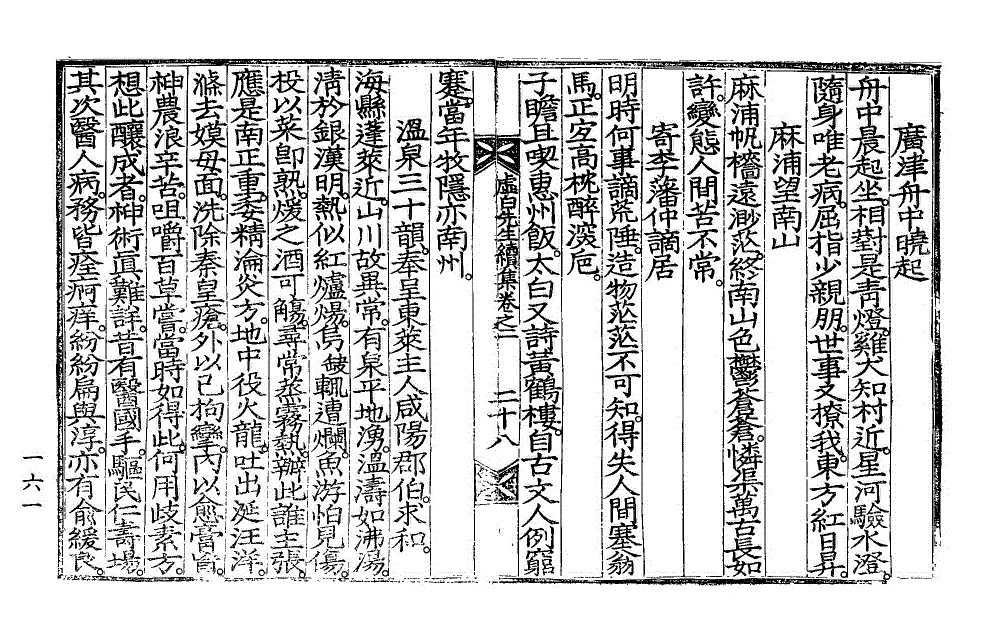 廣津舟中曉起
舟中晨起坐。相對是靑燈。雞犬知村近。星河驗水澄。
隨身唯老病。屈指少親朋。世事又撩我。東方紅日昇。
麻浦望南山
麻浦帆檣遠渺茫。終南山色鬱蒼蒼。憐渠萬古長如
許。變態人間苦不常。
寄李藩仲謫居
明時何事謫荒陲。造物茫茫不可知。得失人間塞翁
馬。正宜高枕醉深卮。
子瞻且喫惠州飯。太白又詩黃鶴樓。自古文人例窮
塞。當年牧隱亦南州。
虛白先生續集卷之二 二十八
溫泉三十韻。奉呈東萊主人咸陽郡伯。求和。
海縣蓬萊近。山川故異常。有泉平地湧。溫濤如沸湯。
淸於銀漢明。熱似紅爐煬。鳥皴輒遭爛。魚游怕見傷。
投以菜卽熟。煖之酒可觴。尋常蒸霧熱。辦此誰主張。
應是南正重。委精淪炎方。地中役火龍。吐出涎汪洋。
滌去嫫母面。洗除秦皇瘡。外以已拘攣。內以愈膏肓。
神農浪辛苦。咀嚼百草嘗。當時如得此。何用歧素方。
想此釀成者。神術眞難詳。昔有醫國手。驅民仁壽場。
其次醫人病。務皆痊痾痒。紛紛扁與淳。亦有兪緩良。
一六一